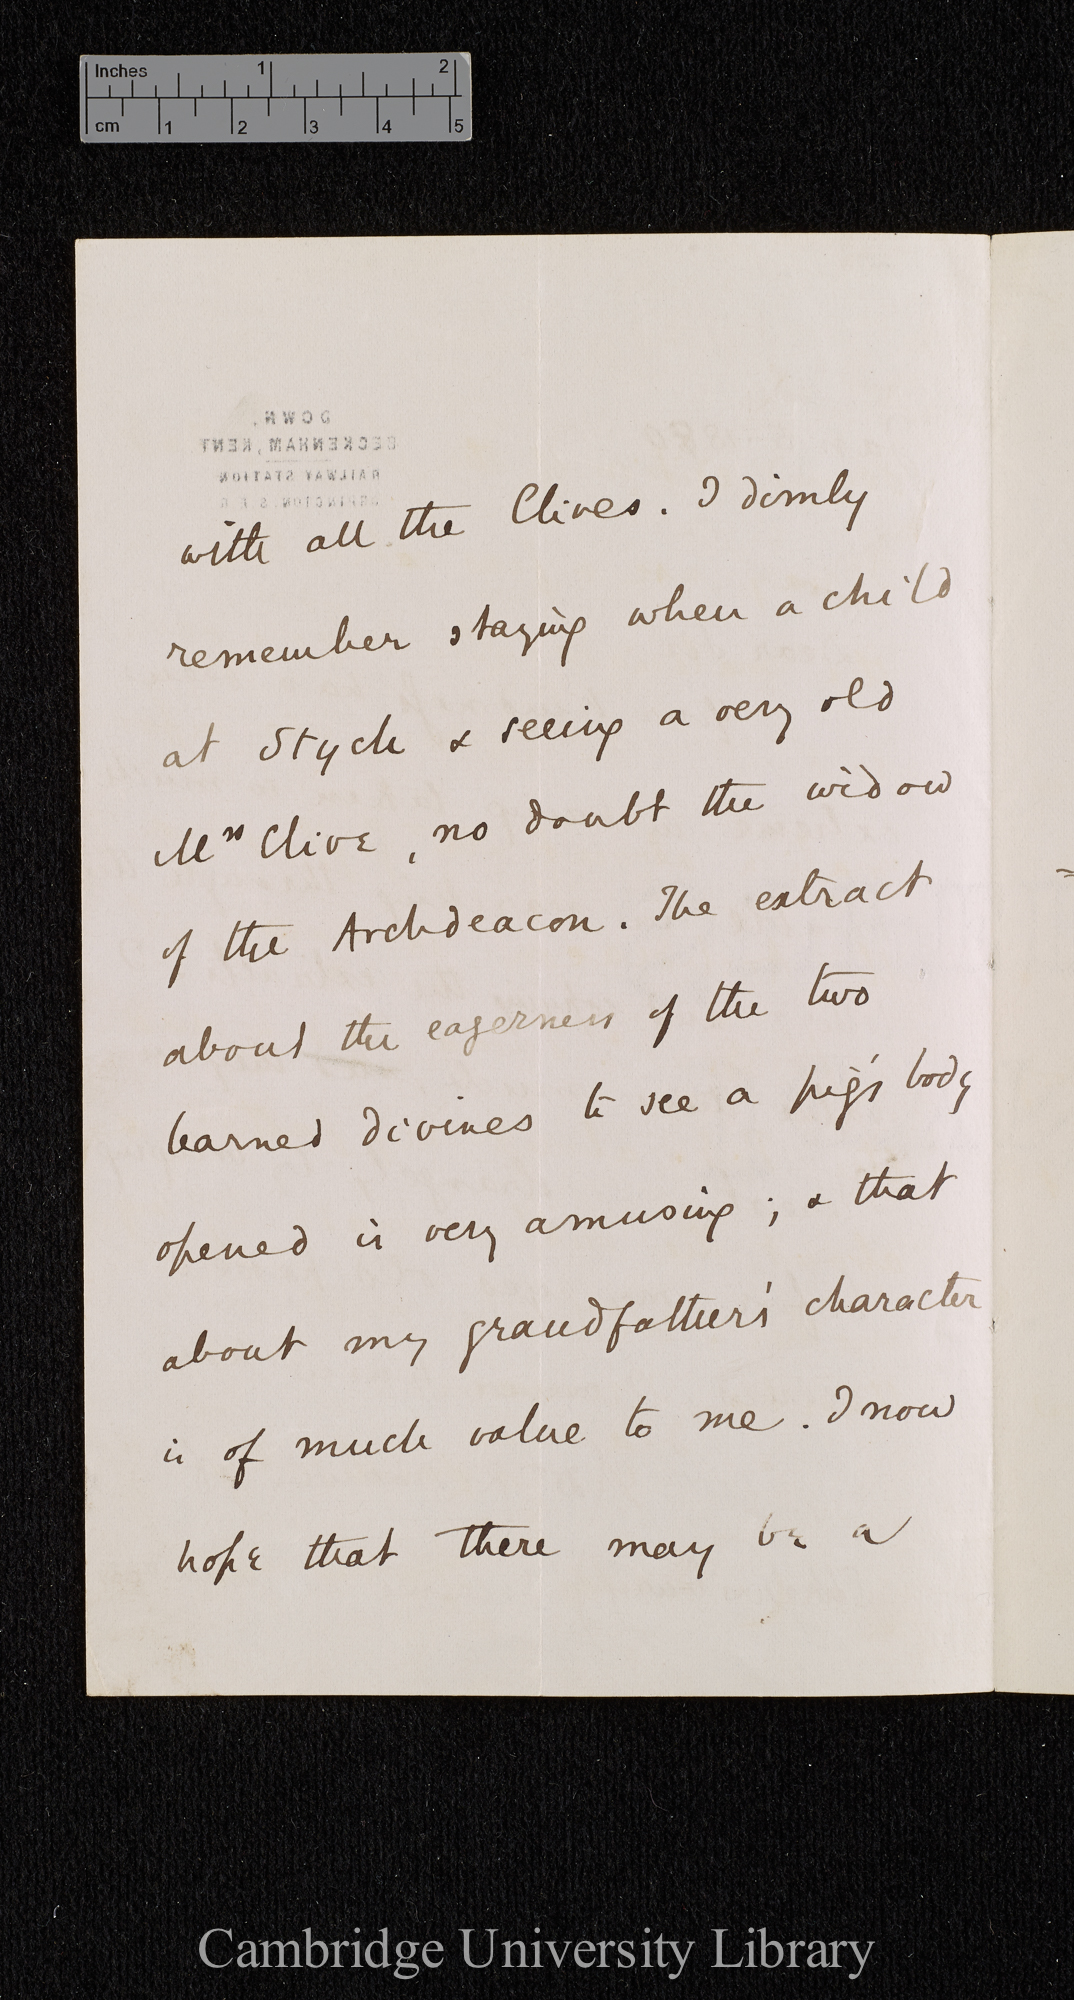 Inches 1 2
cm 1 2 3 4 5
DOWN,
BECKENHAM, KENT.
RAILWAY STATION
ORPINGTON. S.E.R.
with all the Clives. I dimly
remember staying when a child
at Stych & seeing a very old
Mrs Clive, no doubt the widow
of the Archdeacon. The extract
about the eagerness of the two
learned divines to see a pig's body
opened is very amusing; & that
about my grandfather's character
is of much value to me. I now
hope that there may be a
Cambridge University Library